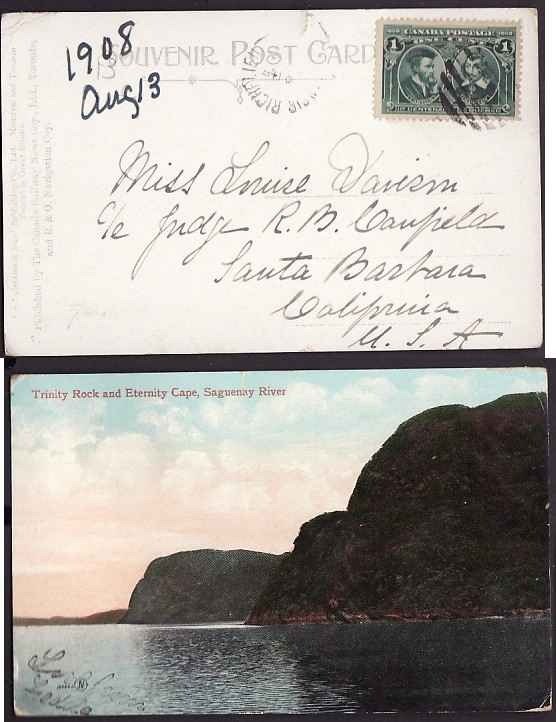 1908
Aug 13
13
SOUVENIR POST CARD
1608 CANADA POSTAGE 1908
1 1
Miss Louise Davison
c/o Judge R. B. Canfield
Santa Barbara
California
U. S. A
Published by The Canada Railway News Coy., Ltd., Toronto,
and R. & O. Navigation Coy.
Trinity Rock and Eternity Cape, Saguenay River